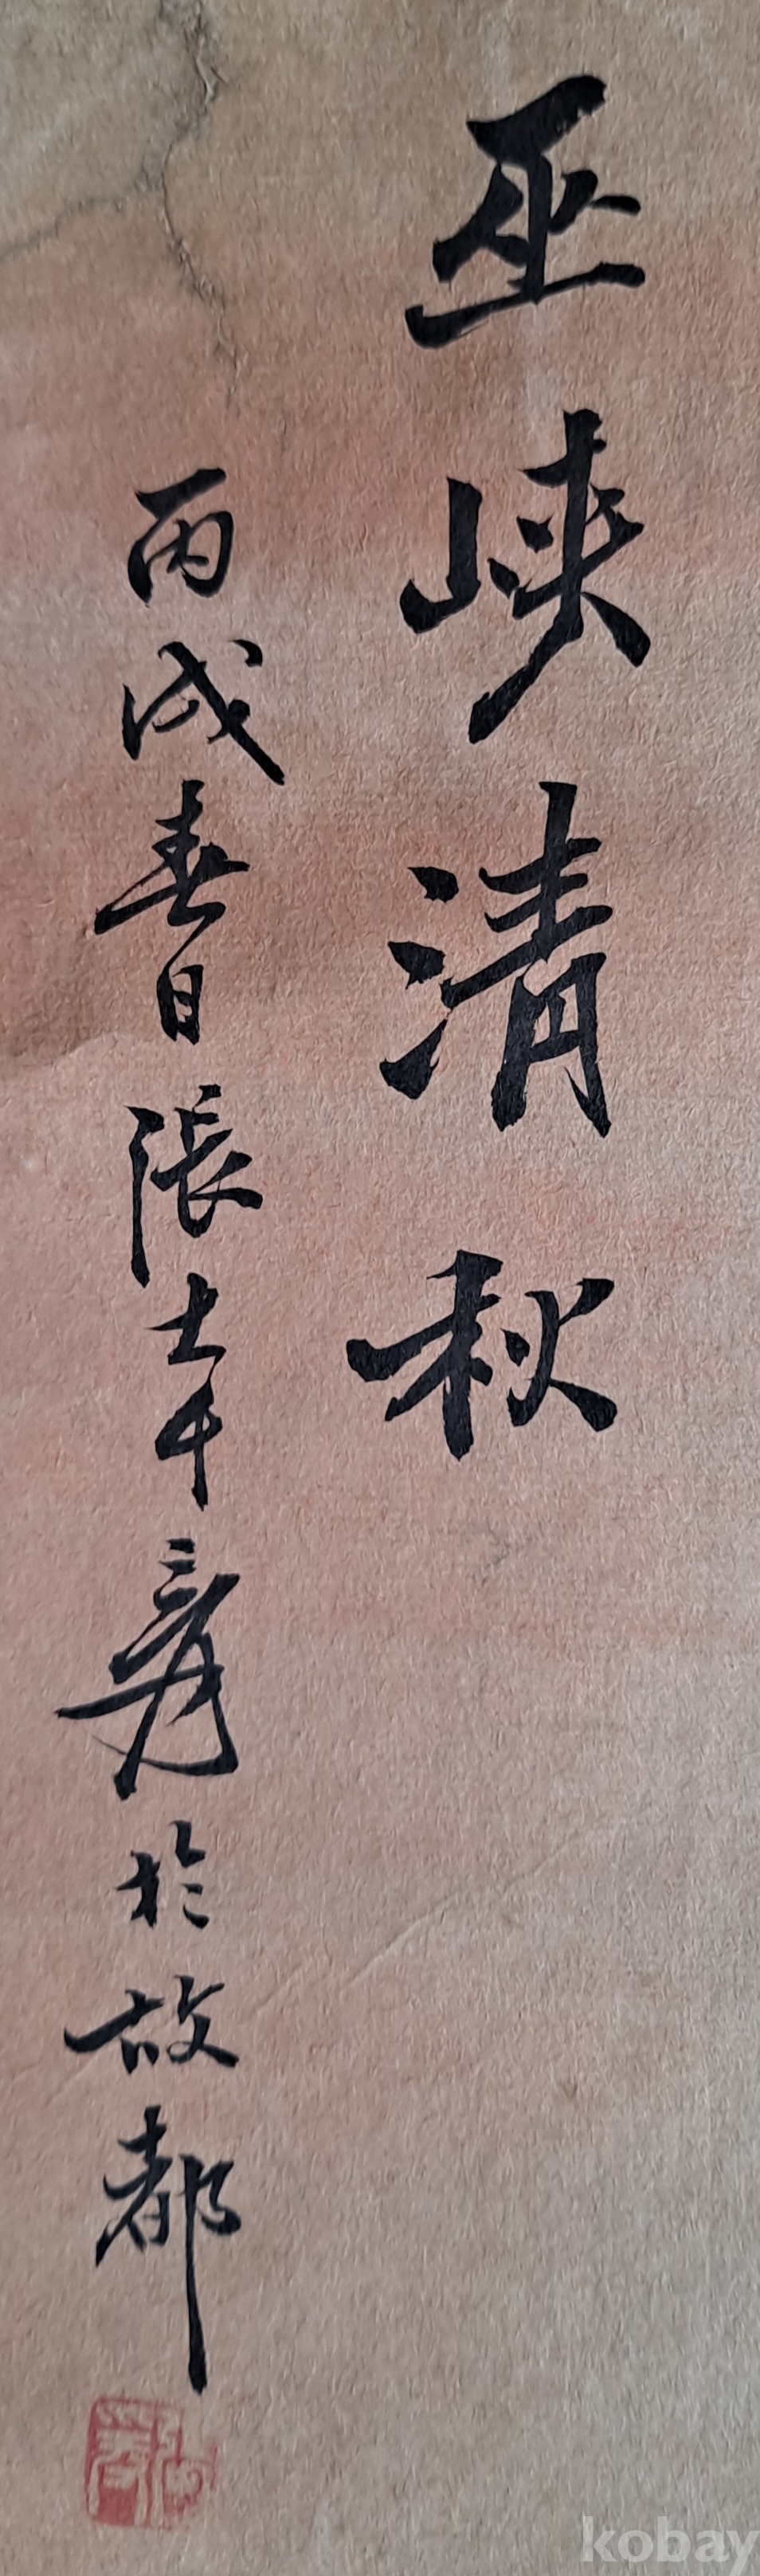 巫峽清秋
丙戌春日張大千爰於故都
kobay